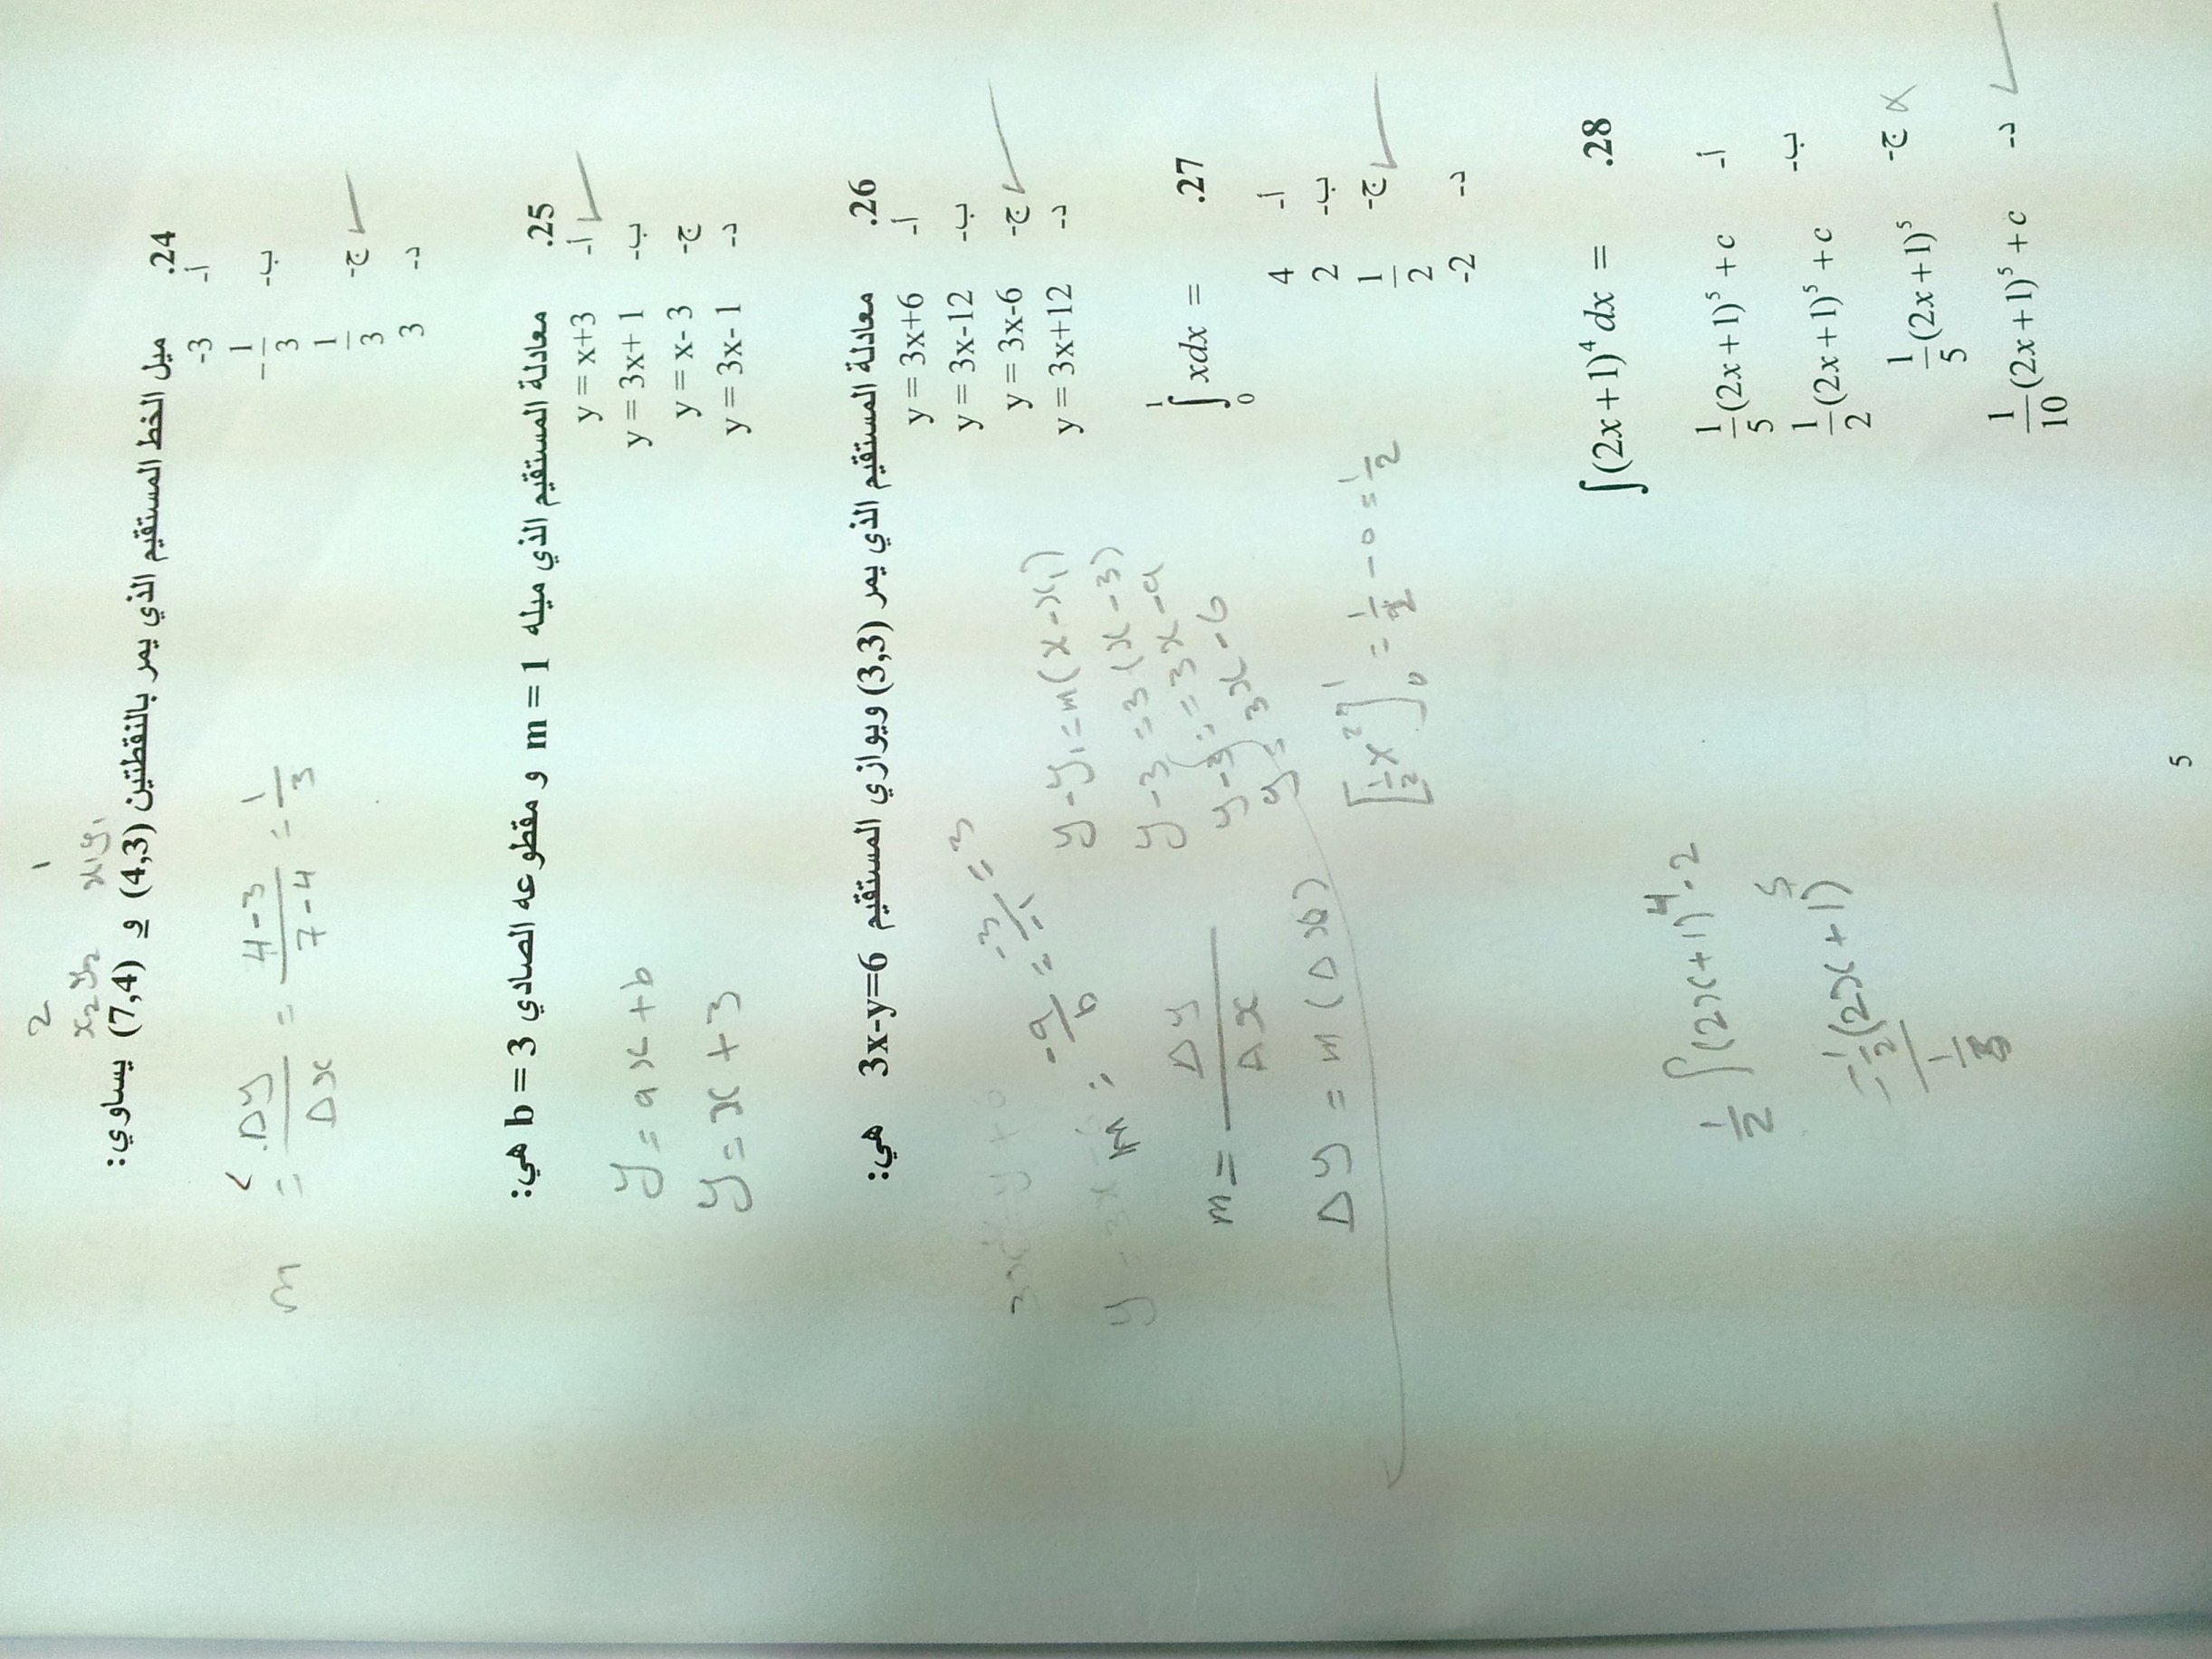 2 1
x₂ y₂ x₁ y₁
24. ميل الخط المستقيم الذي يمر بالنقطتين (4,3) و (7,4) يساوي:
أ- -3
ب- -1/3
ج- 1/3 ✓
د- 3
m = Δy/Δx = 4-3/7-4 = 1/3
25. معادلة المستقيم الذي ميله m = 1 و مقطوعه الصادي b = 3 هي:
أ- y = x+3 ✓
ب- y = 3x+ 1
ج- y = x- 3
د- y = 3x- 1
y = ax + b
y = x + 3
26. معادلة المستقيم الذي يمر (3,3) ويوازي المستقيم 3x-y=6 هي:
أ- y = 3x+6
ب- y = 3x-12
ج- y = 3x-6 ✓
د- y = 3x+12
m = -a/b = -3/-1 = 3
y - y₁ = m(x - x₁)
y - 3 = 3(x - 3)
y - 3 = 3x - 9
y = 3x - 6
m = Δy/Δx
Δy = m (Δx)
27. ∫₀¹ xdx =
أ- 4
ب- 2
ج- 1/2 ✓
د- -2
[1/2 x²]₀¹ = 1/2 - 0 = 1/2
28. ∫(2x+1)⁴ dx =
أ- 1/5 (2x+1)⁵ + c
ب- 1/2 (2x+1)⁵ + c
ج- 1/5 (2x+1)⁵ x
د- 1/10 (2x+1)⁵ + c ✓
1/2 ∫(2x+1)⁴ · 2
= 1/2 (2x+1)⁵
5